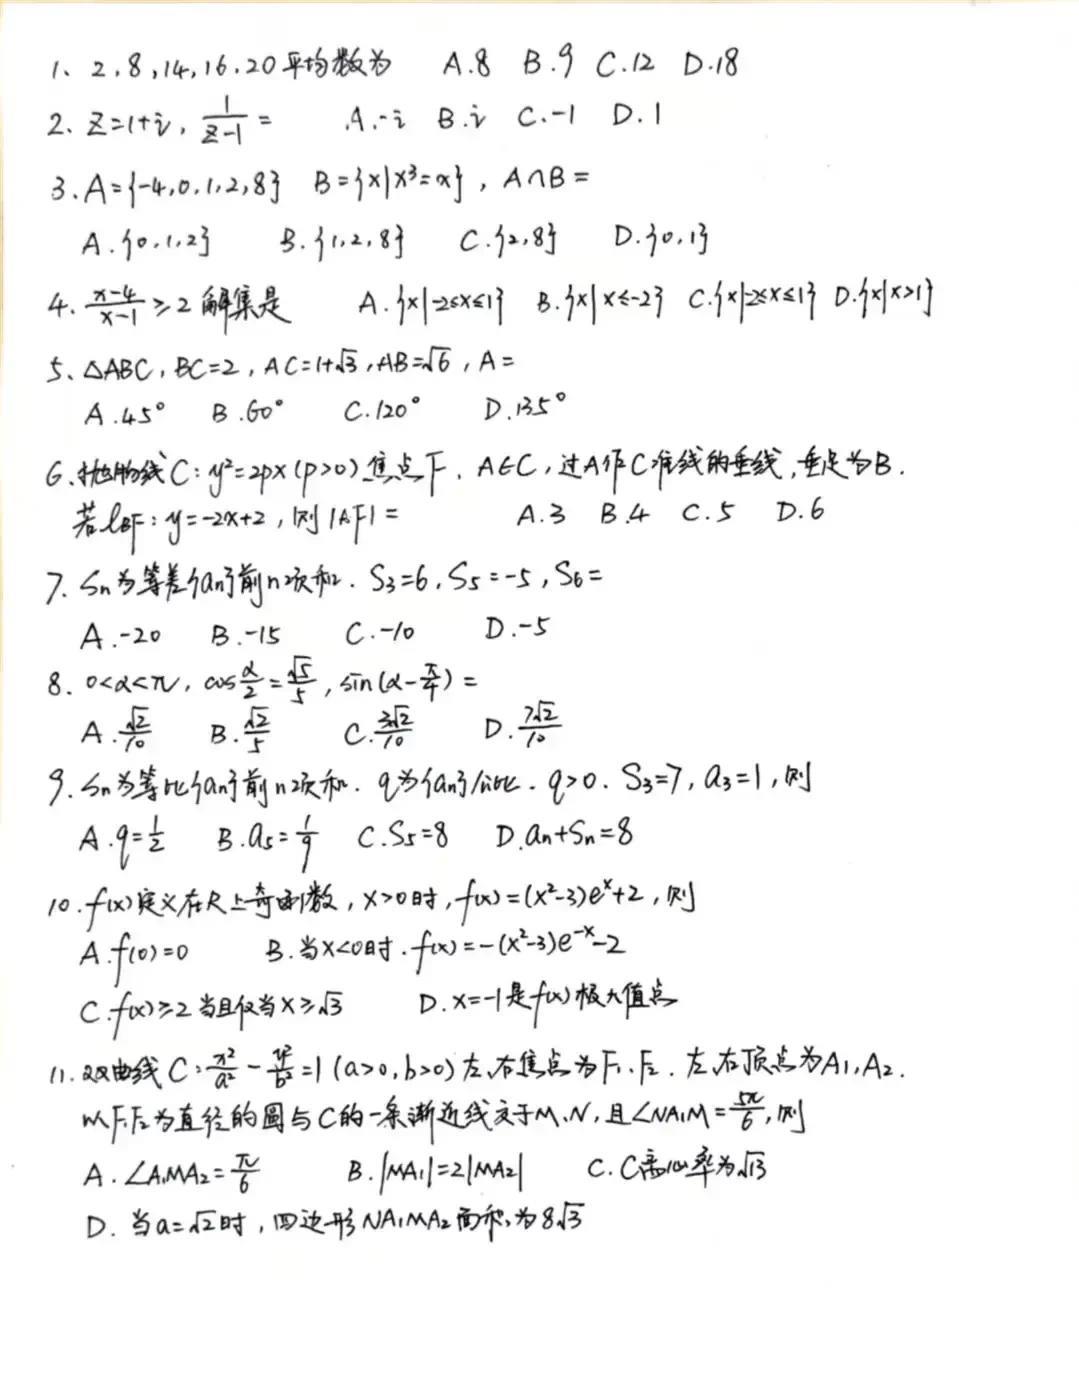 1、2,8,14,16,20平均数为 A.8 B.9 C.12 D.18
2、z=1+i, 1/(z-1)= A.-i B.i C.-1 D.1
3.A={-4,0,1,2,8} B={x|x³=x}, A∩B=
A.{0,1,2} B.{1,2,8} C.{2,8} D.{0,1}
4. (x-4)/(x-1)≥2解集是 A.{x|-2≤x≤1} B.{x|x≤-2} C.{x|-2≤x≤1} D.{x|x>1}
5、△ABC, BC=2, AC=1+√3, AB=√6, A=
A.45° B.60° C.120° D.135°
6.抛物线C:y²=2px(p>0)焦点F, A∈C,过A作C准线的垂线,垂足为B.
若l_BF:y=-2x+2,则|AF|= A.3 B.4 C.5 D.6
7. Sn为等差{an}前n项和. S₃=6, S₅=-5, S₆=
A.-20 B.-15 C.-10 D.-5
8. 0<α<π, cos α/2=√5/5, sin(α-π/4)=
A.√2/10 B.√2/5 C.3√2/10 D.7√2/10
9. Sn为等比{an}前n项和. q为{an}公比. q>0. S₃=7, a₃=1,则
A.q=1/2 B.a₅=1/9 C.S₅=8 D.an+Sn=8
10.f(x)定义在R上奇函数, x>0时, f(x)=(x²-3)eˣ+2,则
A.f(0)=0 B.当x<0时.f(x)=-(x²-3)e⁻ˣ-2
C.f(x)≥2当且仅当x≥√3 D.x=-1是f(x)极大值点
11.双曲线C:x²/a²-y²/b²=1(a>0,b>0)左,右焦点为F₁.F₂. 左,右顶点为A₁,A₂.
以F₁F₂为直径的圆与C的一条渐近线交于M、N,且∠NA₁M=5π/6,则
A.∠A₁MA₂=π/6 B.|MA₁|=2|MA₂| C.C离心率为√13
D.当a=√2时,四边形NA₁MA₂面积为8√3